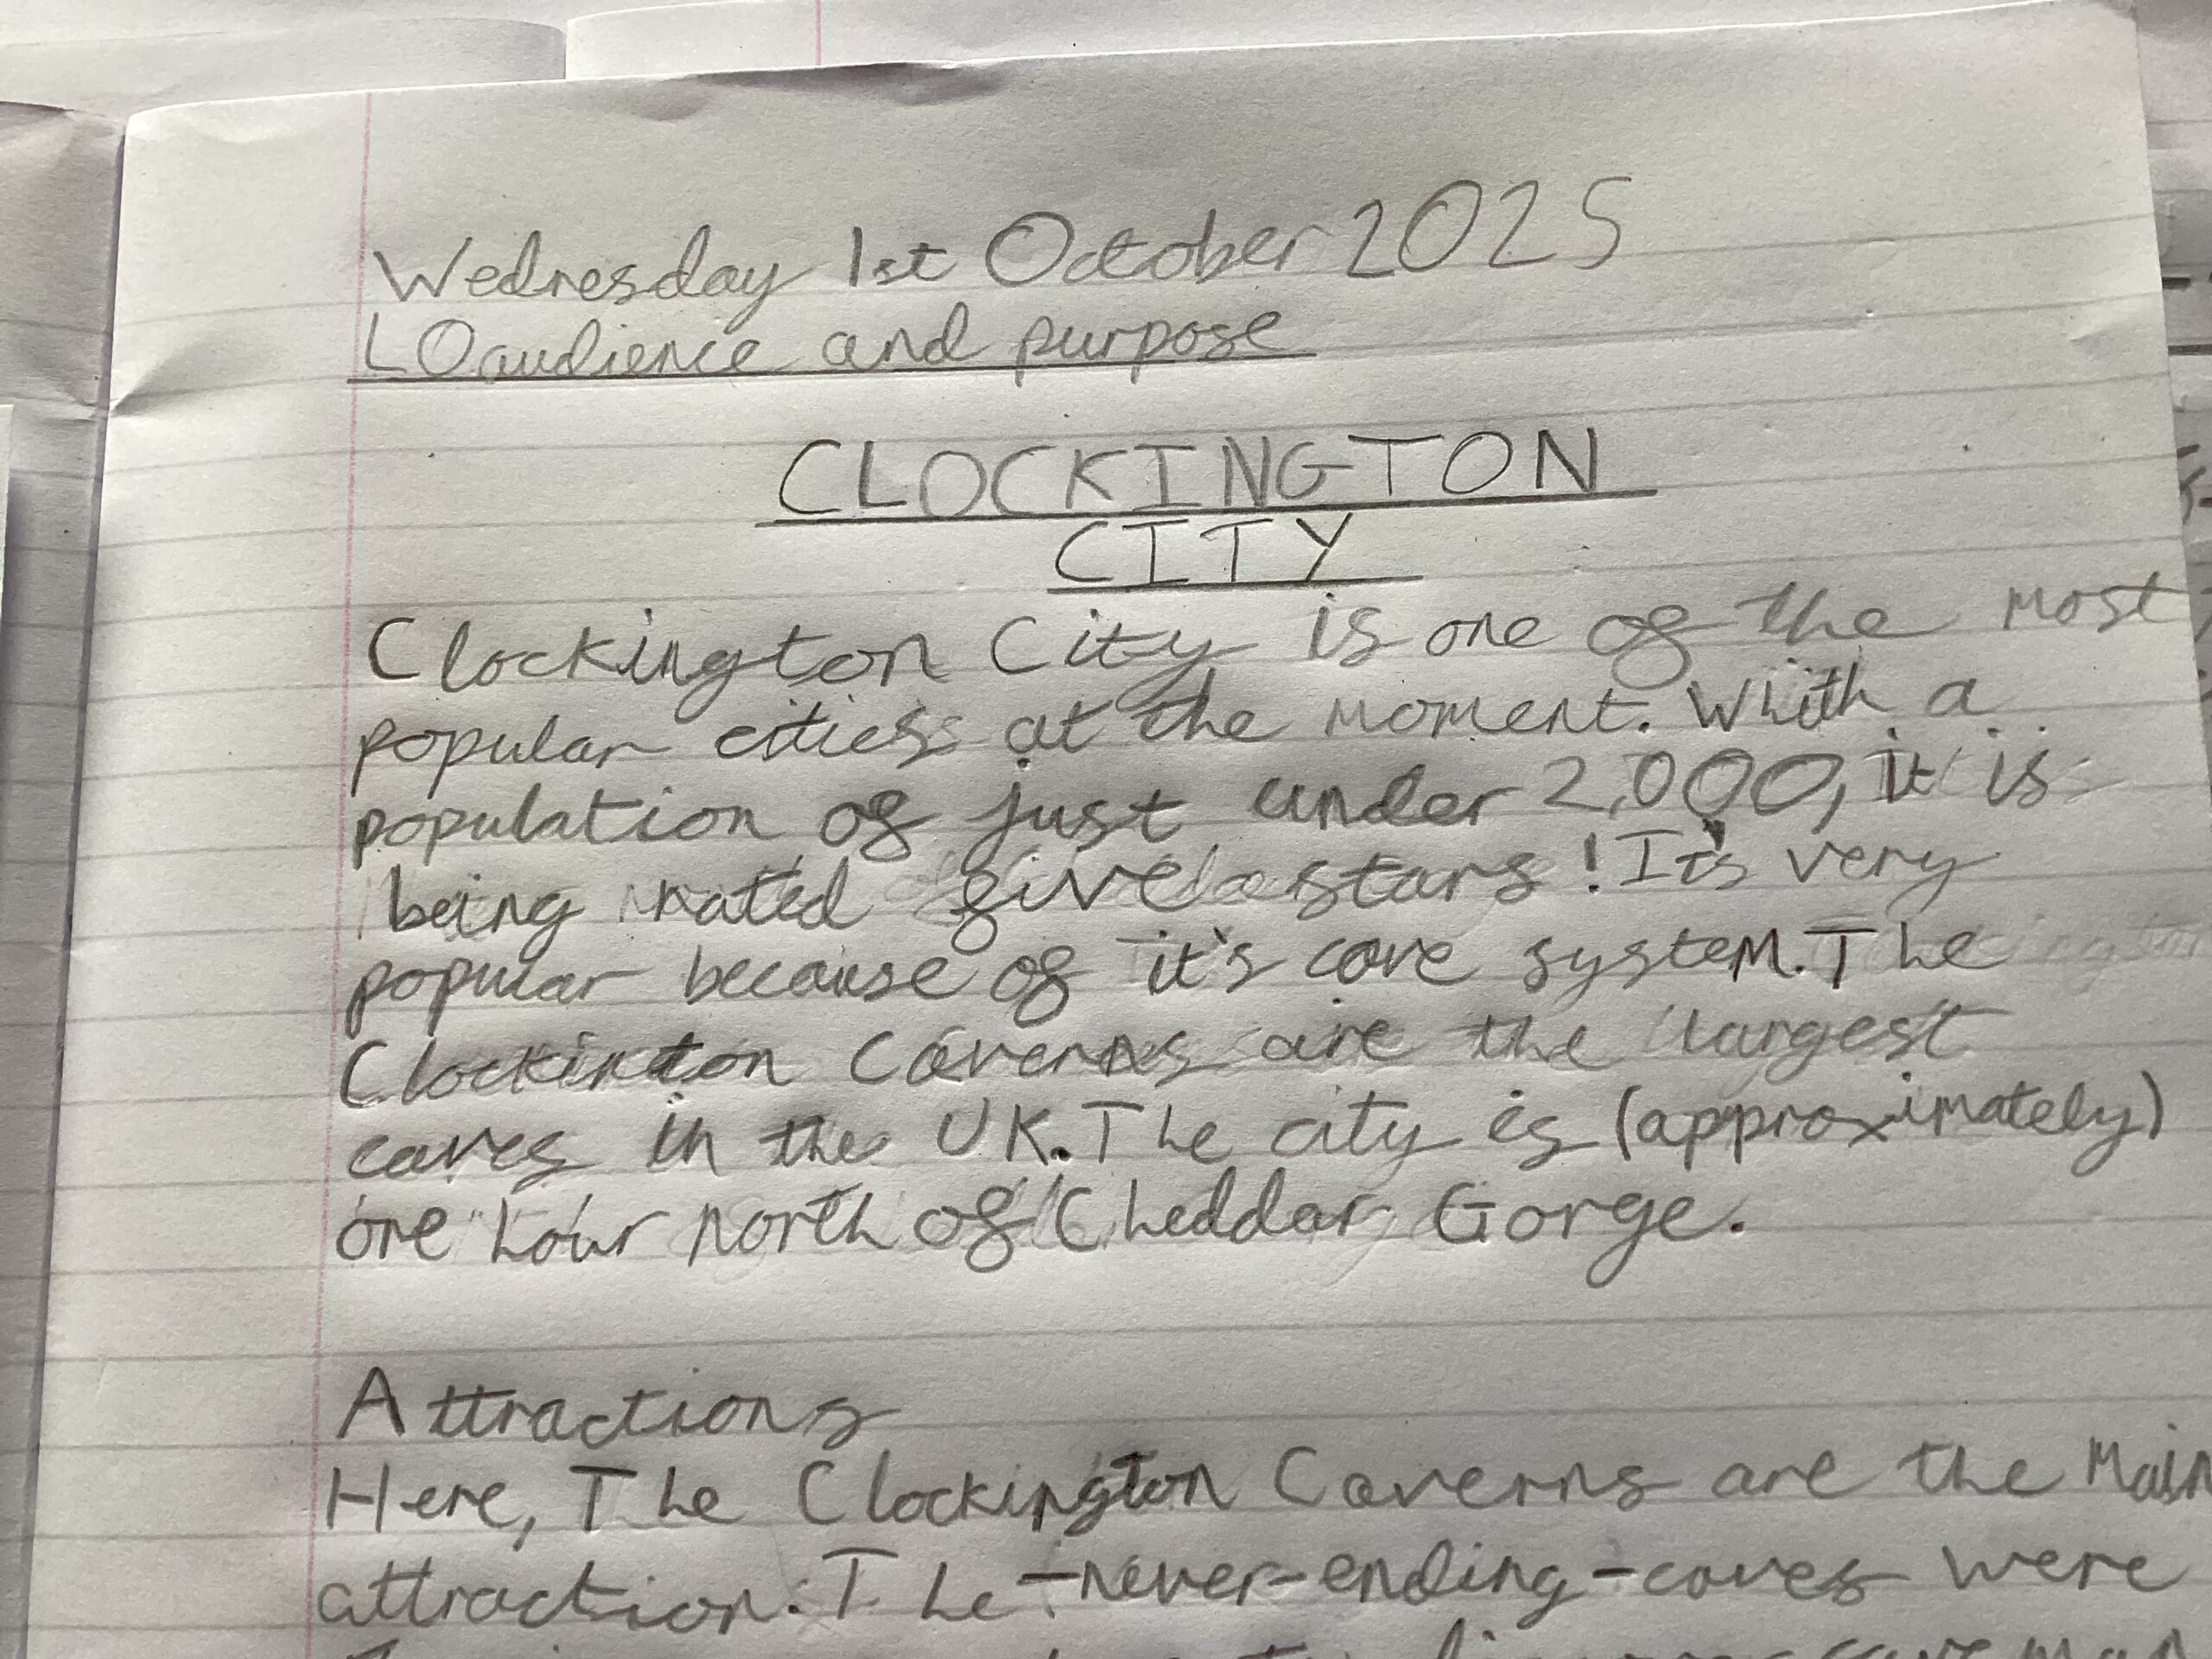 Wednesday 1st October 2025
LO audience and purpose
CLOCKINGTON
CITY
Clockington City is one of the most
popular cities at the moment. With a
population of just under 2,000, it is
being rated five stars! It's very
popular because of it's cave system. The
Clockinton Caverns are the largest
caves in the UK. The city is (approximately)
one hour north of Cheddar Gorge.
Attractions
Here, The Clockington Caverns are the main
attraction. The -never-ending-caves were